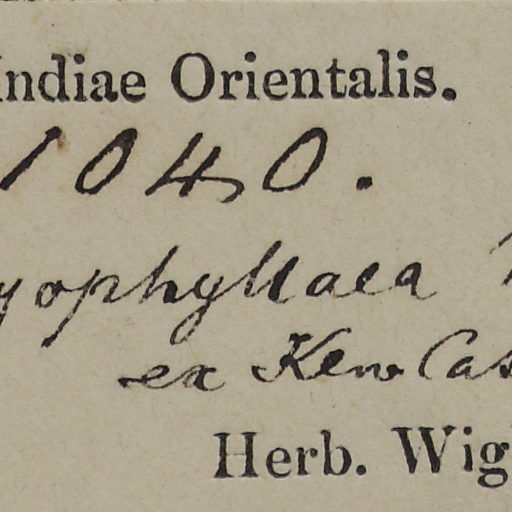 Indiae Orientalis.
1040.
yophyllaea
ex Kew Cas
Herb. Wig